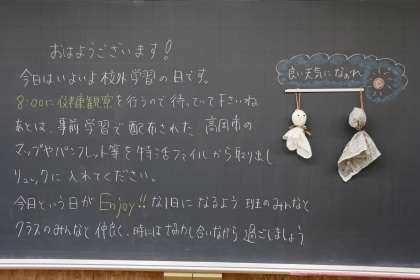 おはようございます!
今日はいよいよ校外学習の日です。
8:00に健康観察を行うので待っていて下さいね
あとは、事前学習で配布された、高岡市の
マップやパンフレット等を特活ファイルから取り出し
リュックに入れてください。
今日という日がEnjoy!!な1日になるよう 班のみんなと
クラスのみんなと仲良く、時にははげまし合いながら 過ごしましょう
良い天気になあれ